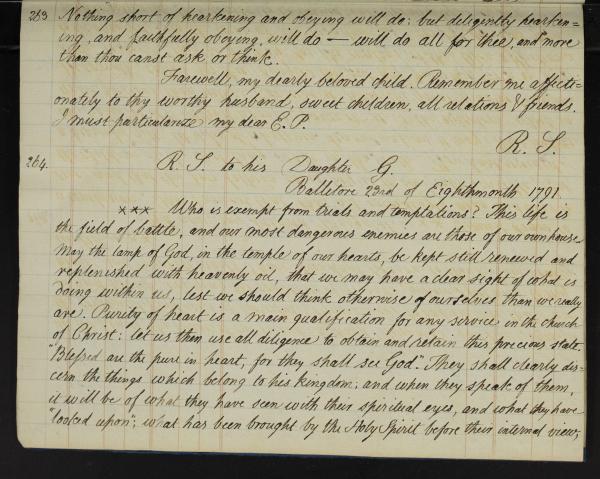 263 Nothing short of hearkening and obeying will do: but diligently hearken=
ing, and faithfully obeying, will do — will do all for thee, and more
than thou canst ask or think.
Farewell, my dearly beloved child. Remember me affecti=
onately to thy worthy husband, sweet children, all relations & friends.
I must particularize my dear E. P.
R. S.
264. R. S. to his Daughter G.
Ballitore 23rd of Eighthmonth 1791
x x x Who is exempt from trials and temptations? This life is
the field of battle, and our most dangerous enemies are those of our own house.
May the lamp of God, in the temple of our hearts, be kept still renewed and
replenished with heavenly oil, that we may have a clear sight of what is
doing within us, lest we should think otherwise of ourselves than we really
are. Purity of heart is a main qualification for any service in the church
of Christ: let us then use all diligence to obtain and retain this precious state.
"Blessed are the pure in heart, for they shall see God." They shall clearly dis=
cern the things which belong to his kingdom; and when they speak of them,
it will be of what they have seen with their spiritual eyes, and what they have
"looked upon"; what has been brought by the Holy Spirit before their internal view;